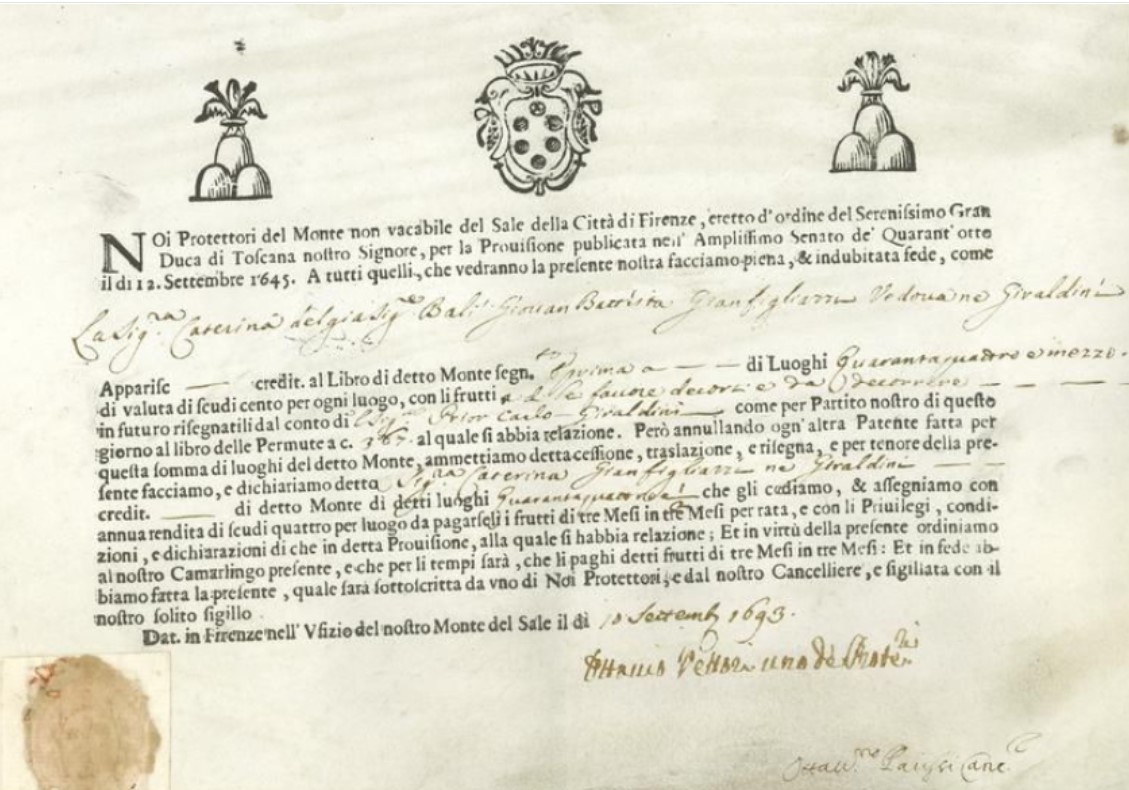 NOi Protettori del Monte non vacabile del Sale della Città di Firenze, eretto d'ordine del Serenissimo Gran
Duca di Toscana nostro Signore, per la Prouisione publicata nell' Amplissimo Senato de' Quarant' otto
il dì 12. Settembre 1645. A tutti quelli, che vedranno la presente nostra facciamo piena, & indubitata fede, come
La Sig.ra Caterina del gia Sig.re Balì Giovan Battista Gianfigliazzi Vedova ne Giraldini
Apparisc credit. al Libro di detto Monte segn. prima a di Luoghi Quarantaquattro e mezzo.
di valuta di scudi cento per ogni luogo, con li frutti a suo fauore decorsi e da decorrere
in futuro risegnatili dal conto di Prior Carlo Giraldini come per Partito nostro di questo
giorno al libro delle Permute a c. 367. al quale si abbia relazione. Però annullando ogn'altra Patente fatta per
questa somma di luoghi del detto Monte, ammettiamo detta cessione, traslazione, e risegna, e per tenore della pre-
sente facciamo, e dichiariamo detta Sig.ra Caterina Gianfigliazzi ne Giraldini
credit. di detto Monte di detti luoghi che gli cediamo, & assegniamo con
annua rendita di scudi quattro per luogo da pagarseli i frutti di tre Mesi in tre Mesi per rata, e con li Priuilegi, condi-
zioni, e dichiarazioni di che in detta Prouisione, alla quale si habbia relazione; Et in virtù della presente ordiniamo
al nostro Camarlingo presente, e che per li tempi sarà, che li paghi detti frutti di tre Mesi in tre Mesi: Et in fede ab-
biamo fatta la presente, quale sarà sottoscritta da vno di Noi Protettori, e dal nostro Cancelliere, e sigillata con il
nostro solito sigillo.
Dat. in Firenze nell' Vfizio del nostro Monte del Sale il dì 10 Settemb. 1693.
Vettori uno de Prote.ri
Canc.e